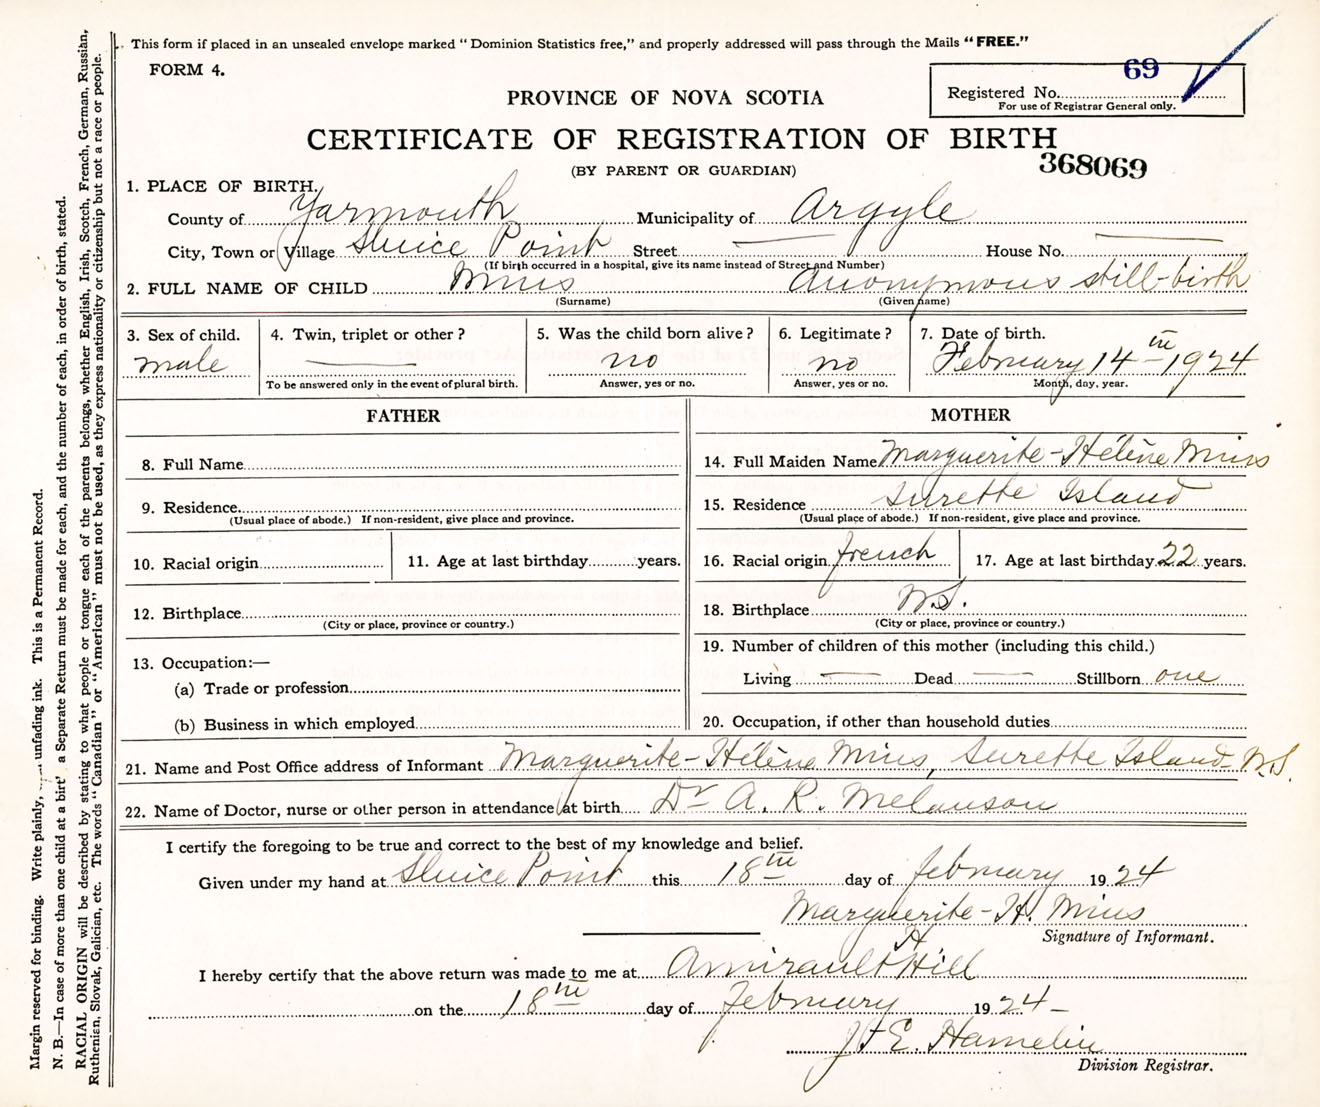 This form if placed in an unsealed envelope marked "Dominion Statistics free," and properly addressed will pass through the Mails "FREE."
FORM 4.
69
Registered No.
For use of Registrar General only.
PROVINCE OF NOVA SCOTIA
CERTIFICATE OF REGISTRATION OF BIRTH
(BY PARENT OR GUARDIAN)
368069
1. PLACE OF BIRTH.
County of Yarmouth Municipality of Argyle
City, Town or Village Sluice Point Street — House No. —
(If birth occurred in a hospital, give its name instead of Street and Number)
2. FULL NAME OF CHILD Mius Anonymous still-birth
(Surname) (Given name)
3. Sex of child. 4. Twin, triplet or other? 5. Was the child born alive? 6. Legitimate? 7. Date of birth.
male — no no February 14th 1924
To be answered only in the event of plural birth. Answer, yes or no. Answer, yes or no. Month, day, year.
FATHER
8. Full Name
9. Residence
(Usual place of abode.) If non-resident, give place and province.
10. Racial origin 11. Age at last birthday years.
12. Birthplace
(City or place, province or country.)
13. Occupation:—
(a) Trade or profession
(b) Business in which employed
MOTHER
14. Full Maiden Name Marguerite-Hélène Mius
15. Residence Surette Island
(Usual place of abode.) If non-resident, give place and province.
16. Racial origin french 17. Age at last birthday 22 years.
18. Birthplace N.S.
(City or place, province or country.)
19. Number of children of this mother (including this child.)
Living — Dead — Stillborn one
20. Occupation, if other than household duties
21. Name and Post Office address of Informant Marguerite-Hélène Mius, Surette Island-N.S.
22. Name of Doctor, nurse or other person in attendance at birth Dr A. R. Melanson
I certify the foregoing to be true and correct to the best of my knowledge and belief.
Given under my hand at Sluice Point this 18th day of february 1924
Marguerite-H. Mius
Signature of Informant.
I hereby certify that the above return was made to me at Amirault Hill
on the 18th day of february 1924-
J. E. Hamelin
Division Registrar.
Margin reserved for binding. Write plainly, unfading ink. This is a Permanent Record.
N. B.—In case of more than one child at a birth a Separate Return must be made for each, and the number of each, in order of birth, stated.
RACIAL ORIGIN will be described by stating to what people or tongue each of the parents belongs, whether English, Irish, Scotch, French, German, Russian,
Ruthenian, Slovak, Galician, etc. The words "Canadian" or "American" must not be used, as they express nationality or citizenship but not a race or people.